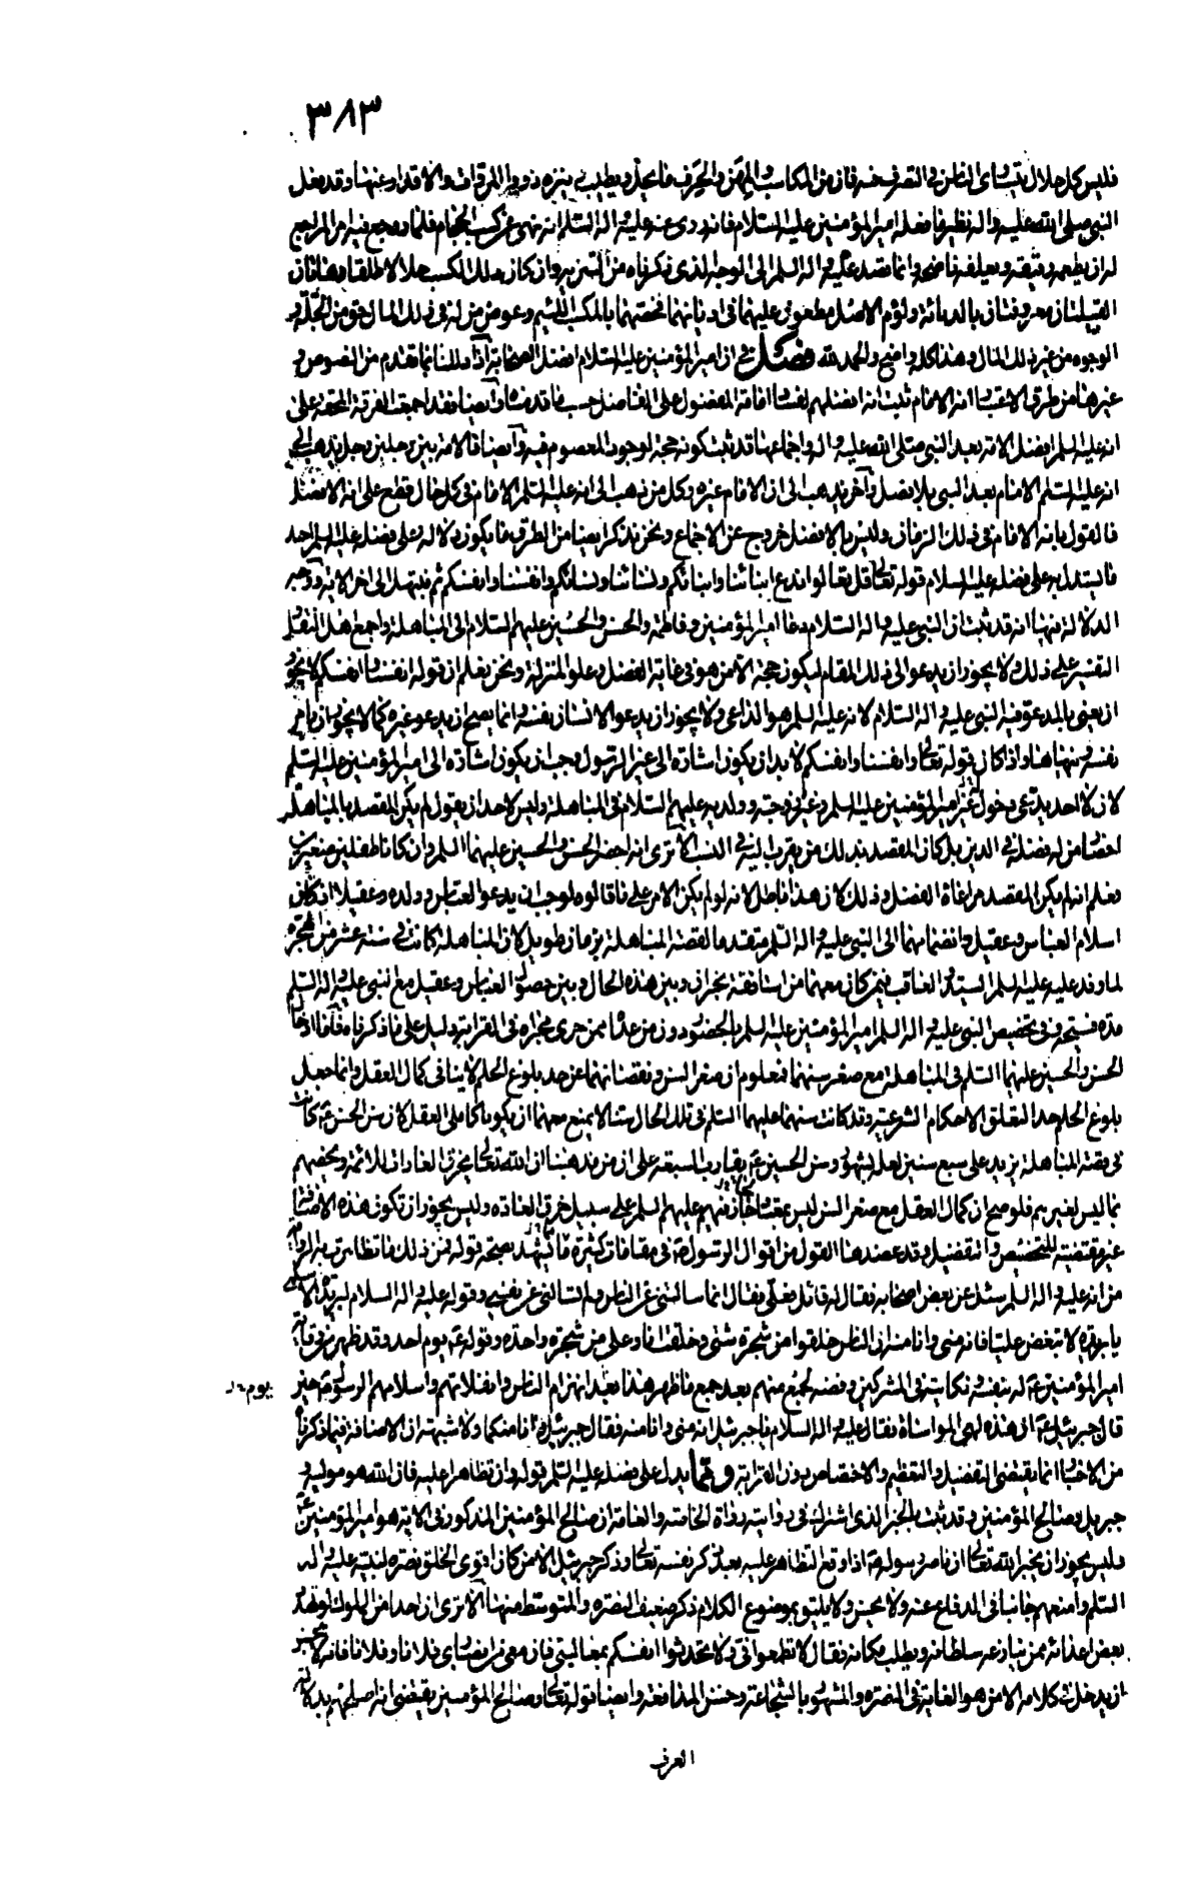 ٣٨٣
فليس كل حلال يتساوى الناس في التصرف فيه فان من المكاسب والمهن والحرف ما يحل ويطيب ويتنزه ذووا المروات والاقدار عنها وقد فعل
النبي صلى الله عليه واله نظير ما فعله امير المؤمنين عليه السلام فانه روى عنه عليه واله السلام انه نهى عن كسب الحجام فلما روجع فيه امر المراجع
له ان يطعمه رقيقه ويعلفه ناضحه وانما قصد عليه واله السلم الى الوجه الذي ذكرناه من التنزيه وان كان ذلك الكسب حلالا طلقا وهاتان
القبيلتان معروفتان بالدناءة ولؤم الاصل مطعون عليهما في ديانتهما فخصهما بالمكسب اللئيم وعوض من له في ذلك المال حق من الجلة و
الوجوه من غير ذلك المال وهذا كله واضح والحمد لله فصل في ان امير المؤمنين عليه السلام افضل الصحابة آذا دللنا بما تقدم من النصوص و
غيرها من طرق الاعتبار انه الامام ثبت انه افضلهم لفساد امامة المفضول على الفاضل حسب ما قدمناه وايضا فقد اجمعت الفرقة المحقة على
انه عليه السلم افضل الامة بعد النبي صلى الله عليه واله واجماعها قد ثبت كونه حجة لوجود المعصوم فيه وايضا فالامة بين رجلين رجل يذهب الى
انه عليه السلم الامام بعد النبي بلا فصل وآخر يذهب الى ان الامام غيره وكل من ذهب الى انه عليه السلم الامام في كل حال قطع على انه الافضل
فالقول بانه الامام في ذلك الزمان وليس بالافضل خروج عن الاجماع ونحن نذكر ايضا من الطرق ما يكون دلالة على فضله عليه السلم احد
ما يستدل به على فضله عليه السلام قوله تعالى قل تعالوا ندع ابناءنا وابناءكم ونساءنا ونساءكم وانفسنا وانفسكم ثم نبتهل الى اخر الاية ووجه
الدلالة منها انه قد ثبت ان النبي عليه واله السلام دعا امير المؤمنين وفاطمة والحسن والحسين عليهم السلام الى المباهلة واجمع اهل النقل و
التفسير على ذلك ولا يجوز ان يدعو الى ذلك المقام ليكون حجة الا من هو في غاية الفضل وعلو المنزلة ونحن نعلم ان قوله انفسنا وانفسكم لا يجوز
ان يعنى بالمدعو فيه النبي عليه واله السلام لانه عليه السلم هو الداعي ولا يجوز ان يدعو الانسان نفسه وانما يصح ان يدعو غيره كما لا يجوز ان يامر
نفسه وينهاها واذا كان قوله تعالى وانفسنا وانفسكم لا بد ان يكون اشارة الى غير الرسول وجب ان يكون اشارة الى امير المؤمنين عليه السلم
لانه لا احد يدعي دخول غير امير المؤمنين عليه السلم وغير زوجته وولديه عليهم السلام في المباهلة وليس لاحد ان يقول لم يكن المقصد بالمباهلة
احضار من له فضله في الدين بل كان المقصد بذلك من يقرب اليه في النسب الا ترى انه احضر الحسن والحسين عليهما السلم وان كانا طفلين صغيرين
فعلم انه لم يكن المقصد مراعاة الفضل وذلك لان هذا باطل لانه لو لم يكن الامر على ما قالوه لوجب ان يدعو العباس وولده وعقيلا اذ كان
اسلام العباس وعقيل وانضمامهما الى النبي عليه واله السلم متقدما لقصة المباهلة بزمان طويل لان المباهلة كانت في سنة عشر من الهجرة
لما وفد عليه عليه السلم السيد والعاقب فيمن كان معهما من اساقفة نجران وبين هذه الحال وبين حصول العباس وعقيل مع النبي عليه واله السلم
مدة فسيحة وفي تخصيص النبي عليه واله السلم امير المؤمنين عليه السلم بالحضور دون من عداه ممن جرى مجراه في القرابة دليل على ما ذكرناه فاما ادخال
الحسن والحسين عليهما السلم في المباهلة مع صغر سنهما فمعلوم ان صغر السن ونقصانهما عن حد بلوغ الحلم لا ينافي كمال العقل وانما جعل
بلوغ الحلم حدا لتعلق الاحكام الشرعية وقد كانت سنهما عليهما السلم في تلك الحال سنا لا يمنع معهما ان يكونا كاملي العقل لان سن الحسن ع كانت
في قصة المباهلة يزيد على سبع سنين لعله بشهور وسن الحسين ع يقارب السبعة على ان من مذهبنا ان الله تعالى يخرق العادات للائمة ويخصهم
بما ليس لغيرهم فلو صح ان كمال العقل مع صغر السن ليس بمعتاد لجاز فيهم عليهم السلم على سبيل خرق العادة وليس يجوز ان تكون هذه الاضافة
غير مقتضية للتخصيص والتفضيل وقد عضد هذا القول من اقوال الرسول ع في مقامات كثيرة ما يشهد بصحة قوله فمن ذلك ما تظاهرت به الرواية
من انه عليه واله السلم سئل عن بعض اصحابه فقال له قائل فعلي فقال انما سالتني عن الناس ولم تسالني عن نفسي وقوله عليه واله السلام لبريدة الاسلمي
يا بريدة لا تبغض عليا فانه مني وانا منه ان الناس خلقوا من شجرة شتى وخلقت انا وعلي من شجرة واحدة وقوله ع يوم احد وقد ظهر من وقاية
امير المؤمنين ع له بنفسه ونكايته في المشركين وفضه لجمع منهم بعد جمع ما ظهر هذا بعد انهزام الناس وانفلاتهم واسلامهم الرسول ع حتى
يوم
قال جبرئيل ع ان هذه لهي المواساة فقال عليه واله السلام يا جبرئيل انه مني وانا منه فقال جبرئيل ع وانا منكما ولا شبهة ان الاضافة فيما ذكرناه
من الاخبار انما يقتضي التفضيل والتعظيم والاختصاص دون القرابة ومما يدل على فضله عليه السلم قوله وان تظاهرا عليه فان الله هو موليه و
جبريل وصالح المؤمنين وقد ثبت بالخبر الذي اشترك في روايته رواة الخاصة والعامة ان صالح المؤمنين المذكور في الاية هو امير المؤمنين ع
وليس يجوز ان يخبر الله تعالى ان ناصر رسوله ع اذا وقع التظاهر عليه بعد ذكر نفسه تعالى وذكر جبرئيل الا من كان اقوى الخلق نصرة لنبيه عليه واله
السلم وامنعهم جانبا في الدفاع عنه ولا يحسن ولا يليق بموضوع الكلام ذكر ضعيف النصرة والمتوسط منها الا ترى ان احدا من الملوك لو تهدد
بعض اعدائه ممن ينازعه سلطانه ويطلب مكانه فقال لا تطمعوا في ولا تحدثوا انفسكم بمغالبتي فان معي من انصاري فلانا وفلانا فانه لا يحسن
ان يدخل في كلامه الا من هو الغاية في النصرة والمشهور بالشجاعة وحسن المدافعة وايضا قوله تعالى وصالح المؤمنين يقتضي انه اصلحهم بدلالة
العرف